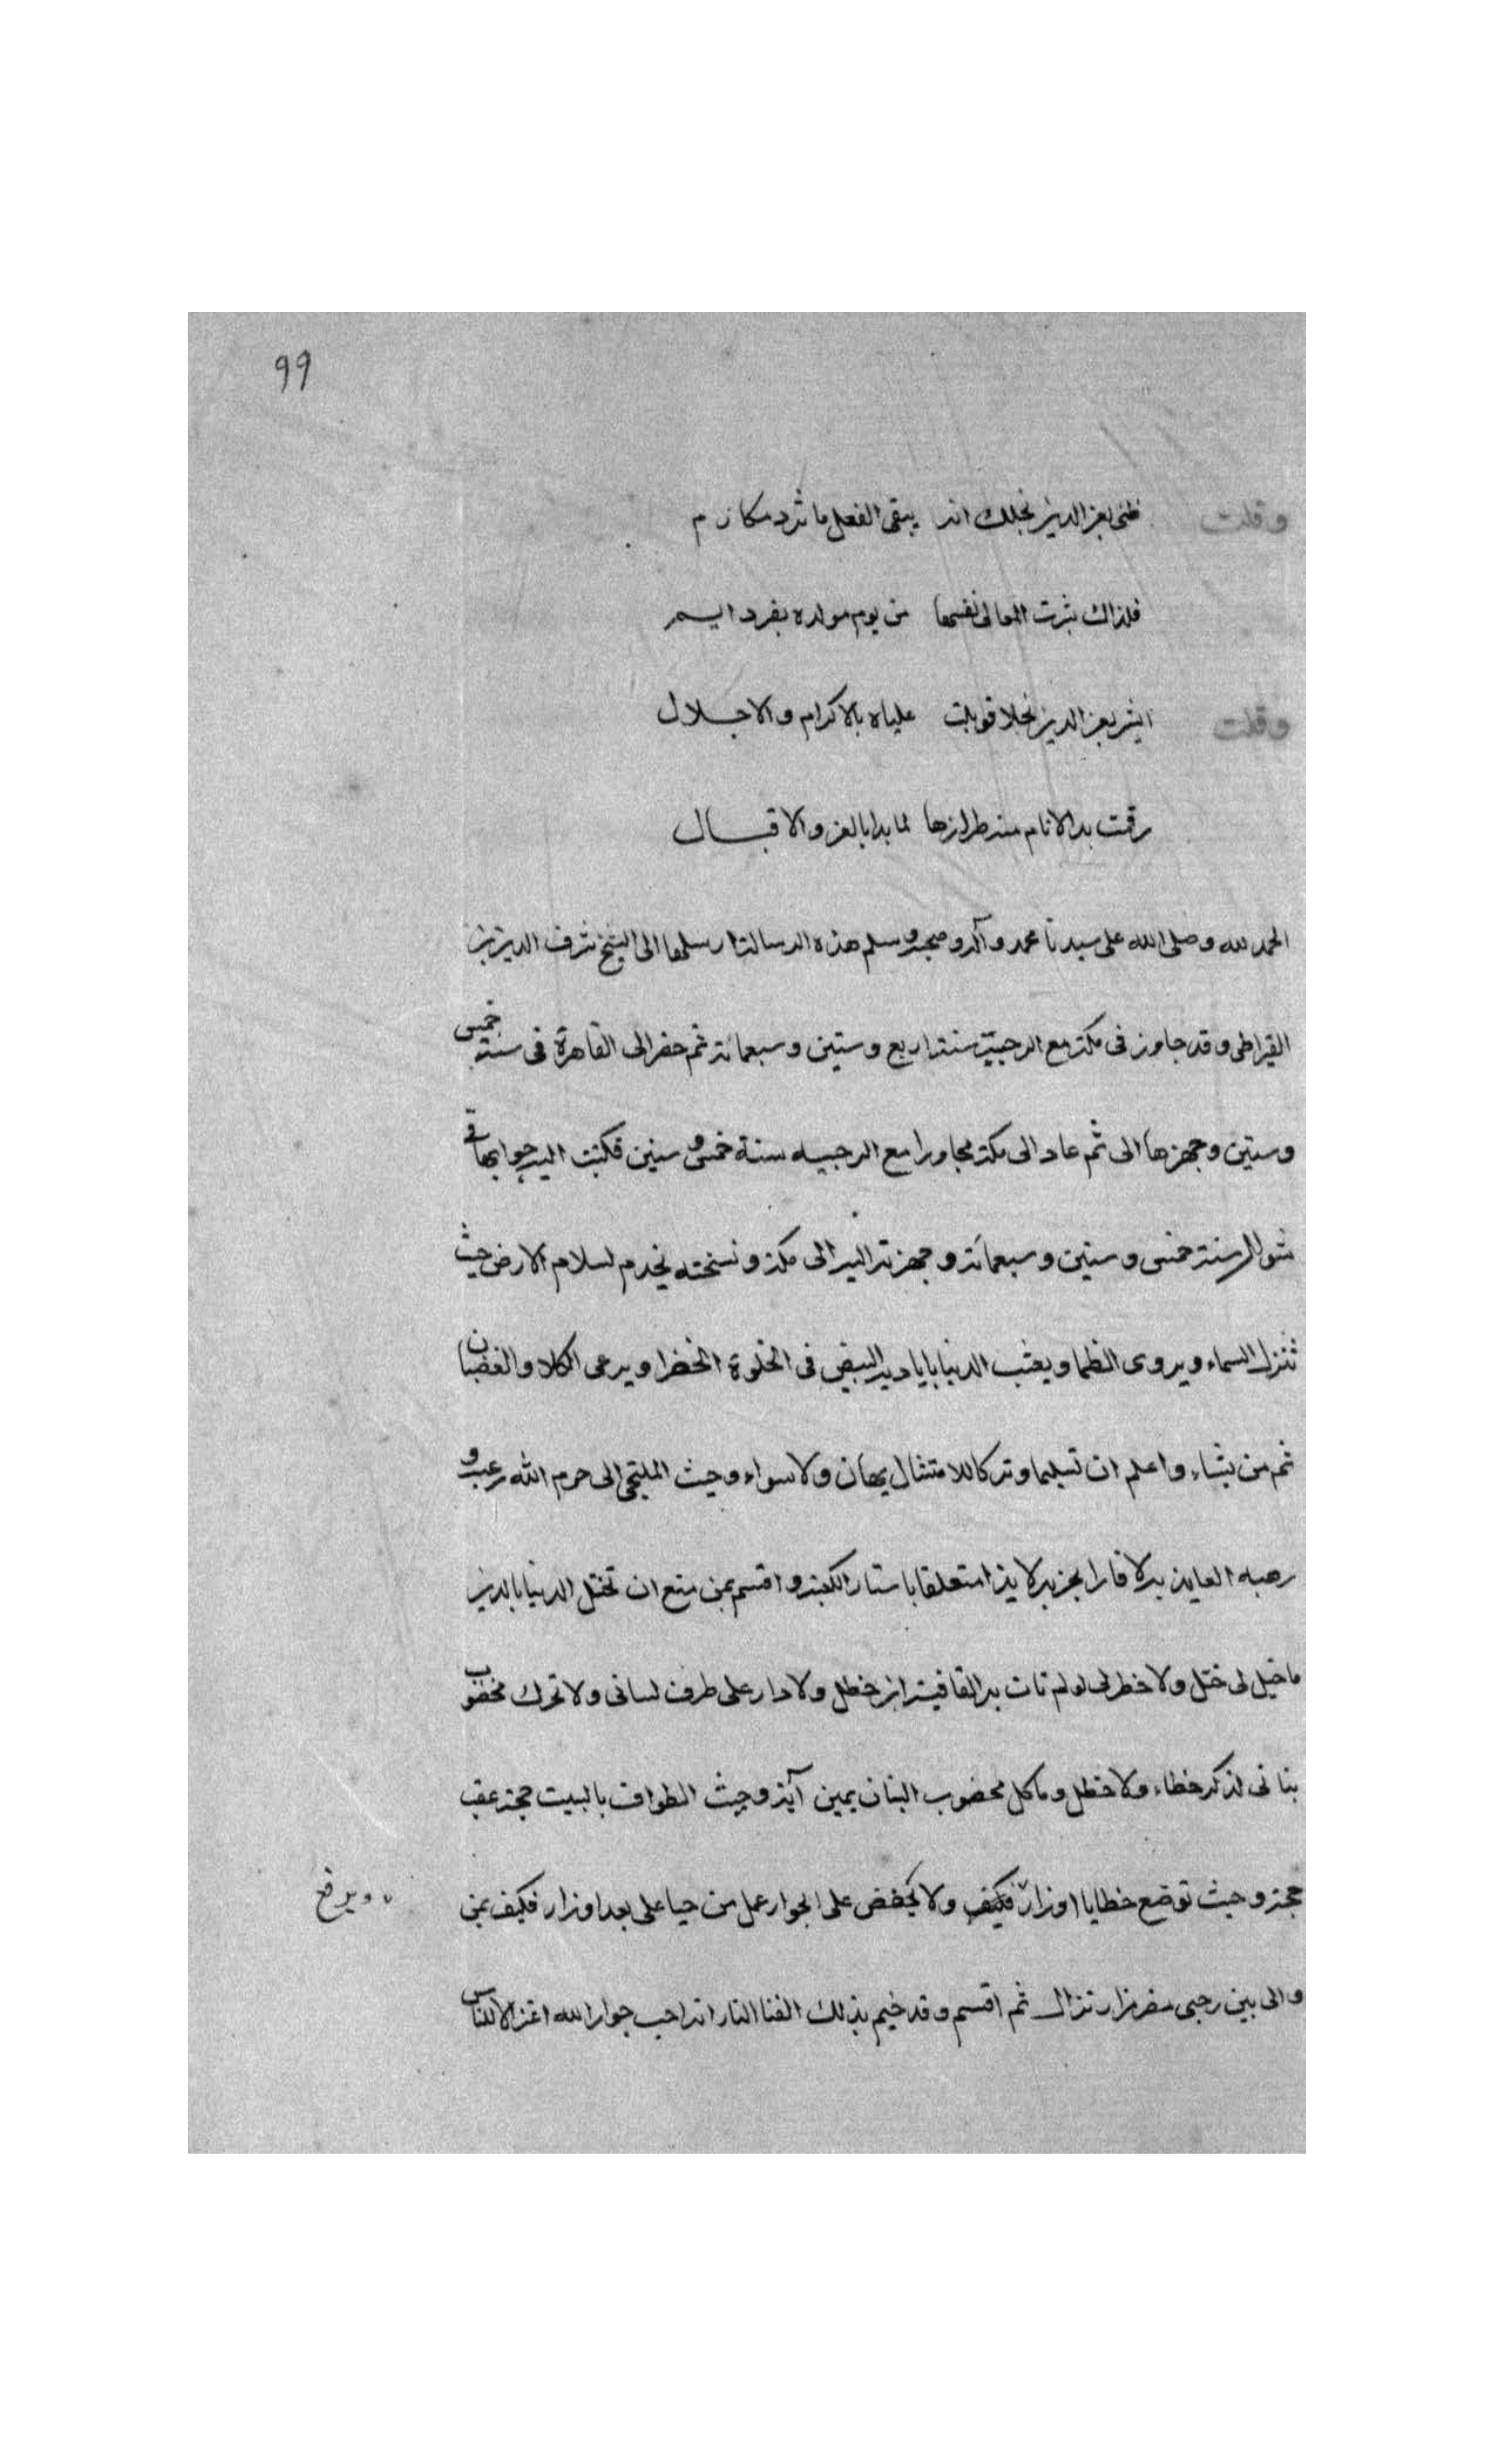 99
وقلت ظنى بعز الدين نجلك انه يبقى الفعل ما ثر د مكارم
فلذاك بثرت المعالى نفسها من يوم مولده بفرد ايسم
وقلت ابشر بعز الدين نجلا قوبلت علياه بالاكرام والاجلال
رقمت به الانام منه طرازها لما بدا بالعز والاقبال
الحمد لله وصلى الله على سيدنا محمد وآله وصحبه وسلم هذه الرسالة ارسلها الى الشيخ شرف الدين بن
القيراطى وقد جاوز فى مكة مع الرحبية سنة اربع وستين وسبعمائة ثم حضر الى القاهرة فى سنة خمس
وستين وجهزها الى ثم عاد الى مكة مجاورا مع الرجبيه سنة خمس وستين فكتبت اليه جوابها فى
شوال سنة خمس وستين وسبعمائة وجهزته اليه الى مكة ونسخته يخدم لسلام الارض حيث
تنزل السماء ويروى الظما ويعتب الدنيا باياديه البيض فى الخلوة الخضرا ويرعى الكلا والغضبان
ثم من يشاء واعلم ان تسليما وتركا للامتثال يهان ولا سواء وحيث الملتجى الى حرم الله رعبه و
رهبه العايذ به لا فارا بخربه لايذا متعلقا باستار الكعبة واقسم بمن منع ان تختل الدنيا بالدين
ما خيل لى ختل ولا خطر لى لو لم تات به القافية ابن خطل ولا دار على طرف لسانى ولا تحرك مخضوب
بنانى لذكر خطاء ولا خطل وما كل مخضوب البنان يمين آية وحيث الطواف بالبيت حجة عقب
حجة وحيث توضع خطايا اوزار فكيف ولا يخفض على الجوار عمل من حيا على بعد اوزار فكيف بمن
ويرفع
والى بين رجبى مضر مزار تنزال ثم اقسم وقد خيم بذلك الفنا النار انه احب جوار الله اعز الا للناس